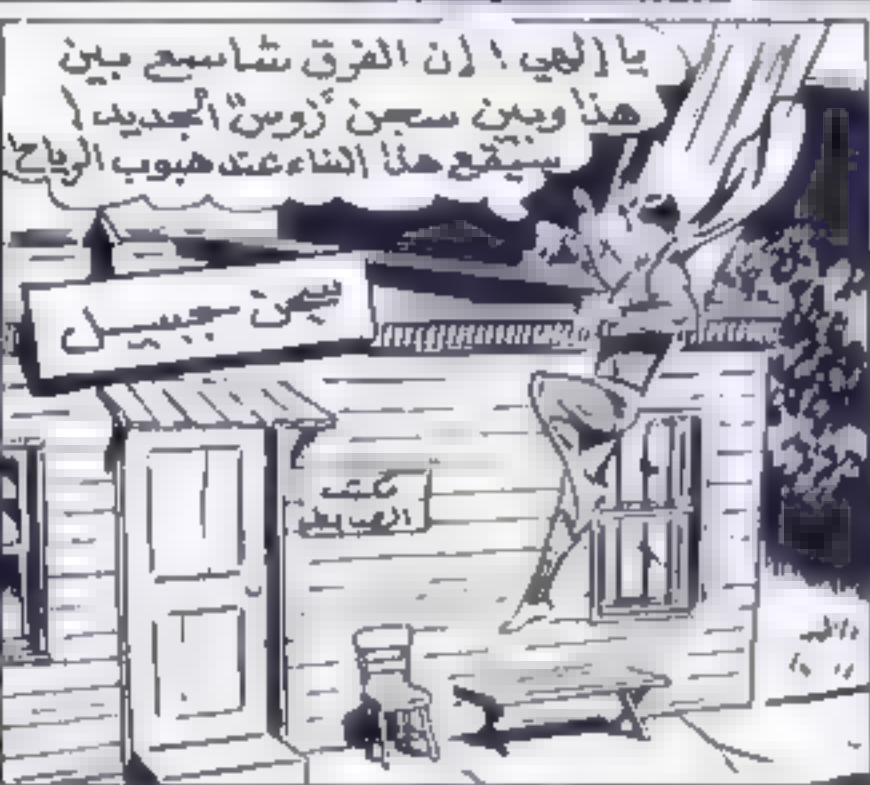 يا إلهي ! إن الفرق شاسع بين
هذا وبين سجن "زوس" الجديد !
سيقع هذا البناء عند هبوب الرياح
سجن جبيل
مكتب
الضابط